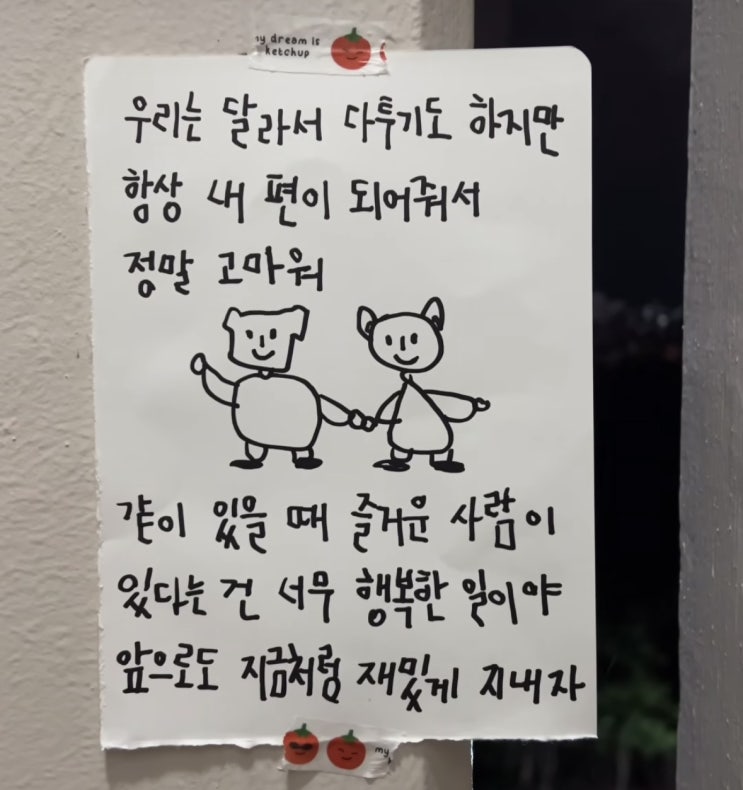 my dream is
ketchup
우리는 달라서 다투기도 하지만
항상 내 편이 되어줘서
정말 고마워
같이 있을 때 즐거운 사람이
있다는 건 너무 행복한 일이야
앞으로도 지금처럼 재밌게 지내자
my